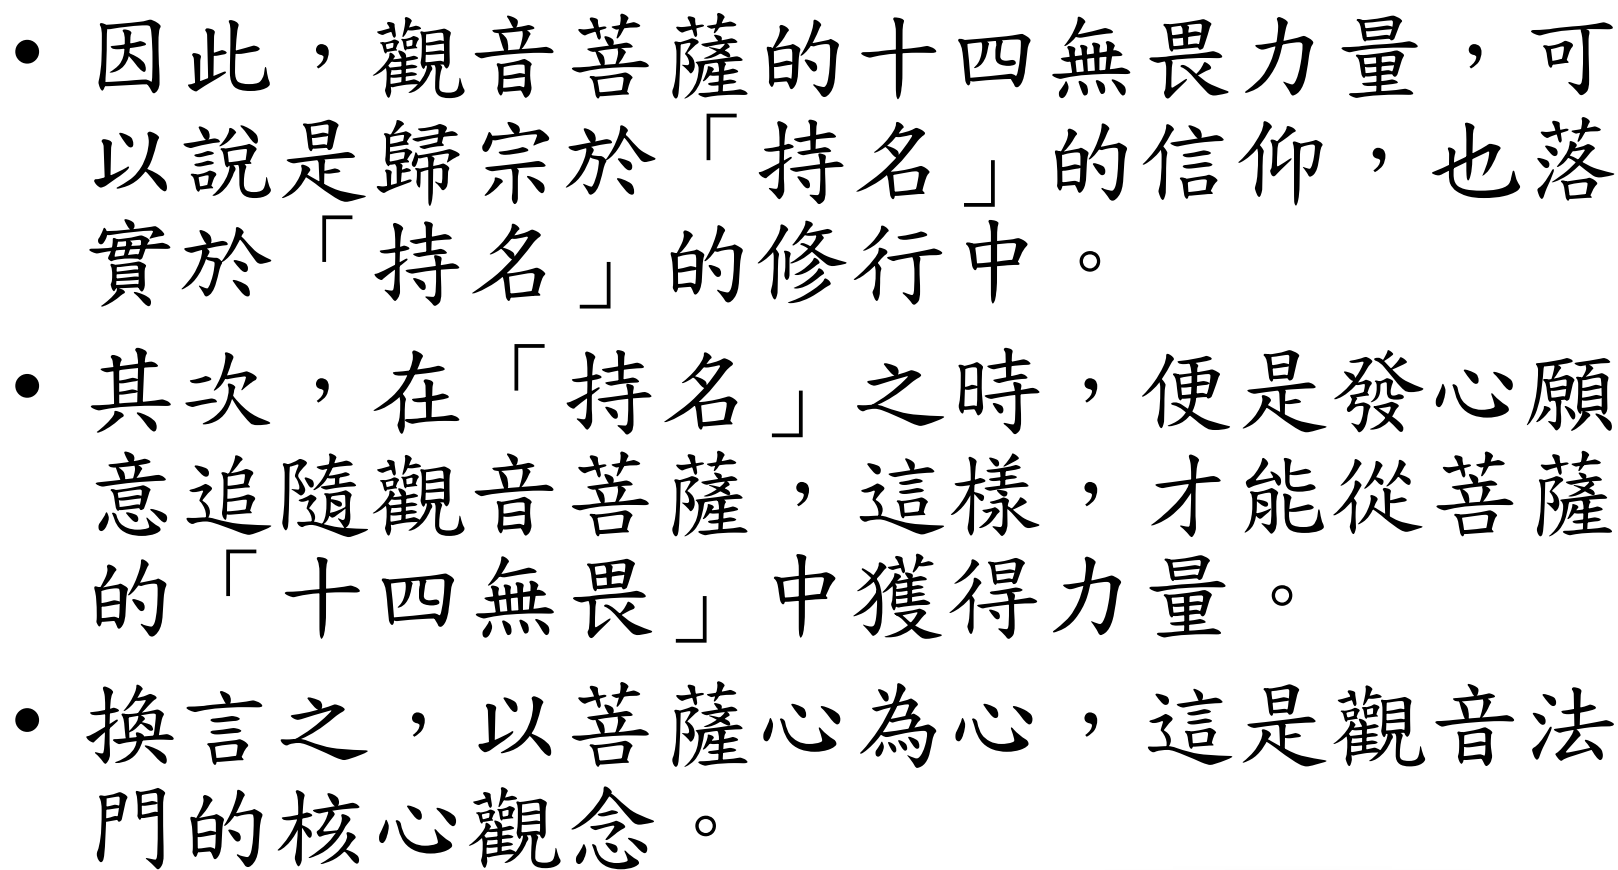 • 因此，觀音菩薩的十四無畏力量，可
以說是歸宗於「持名」的信仰，也落
實於「持名」的修行中。
• 其次，在「持名」之時，便是發心願
意追隨觀音菩薩，這樣，才能從菩薩
的「十四無畏」中獲得力量。
• 換言之，以菩薩心為心，這是觀音法
門的核心觀念。